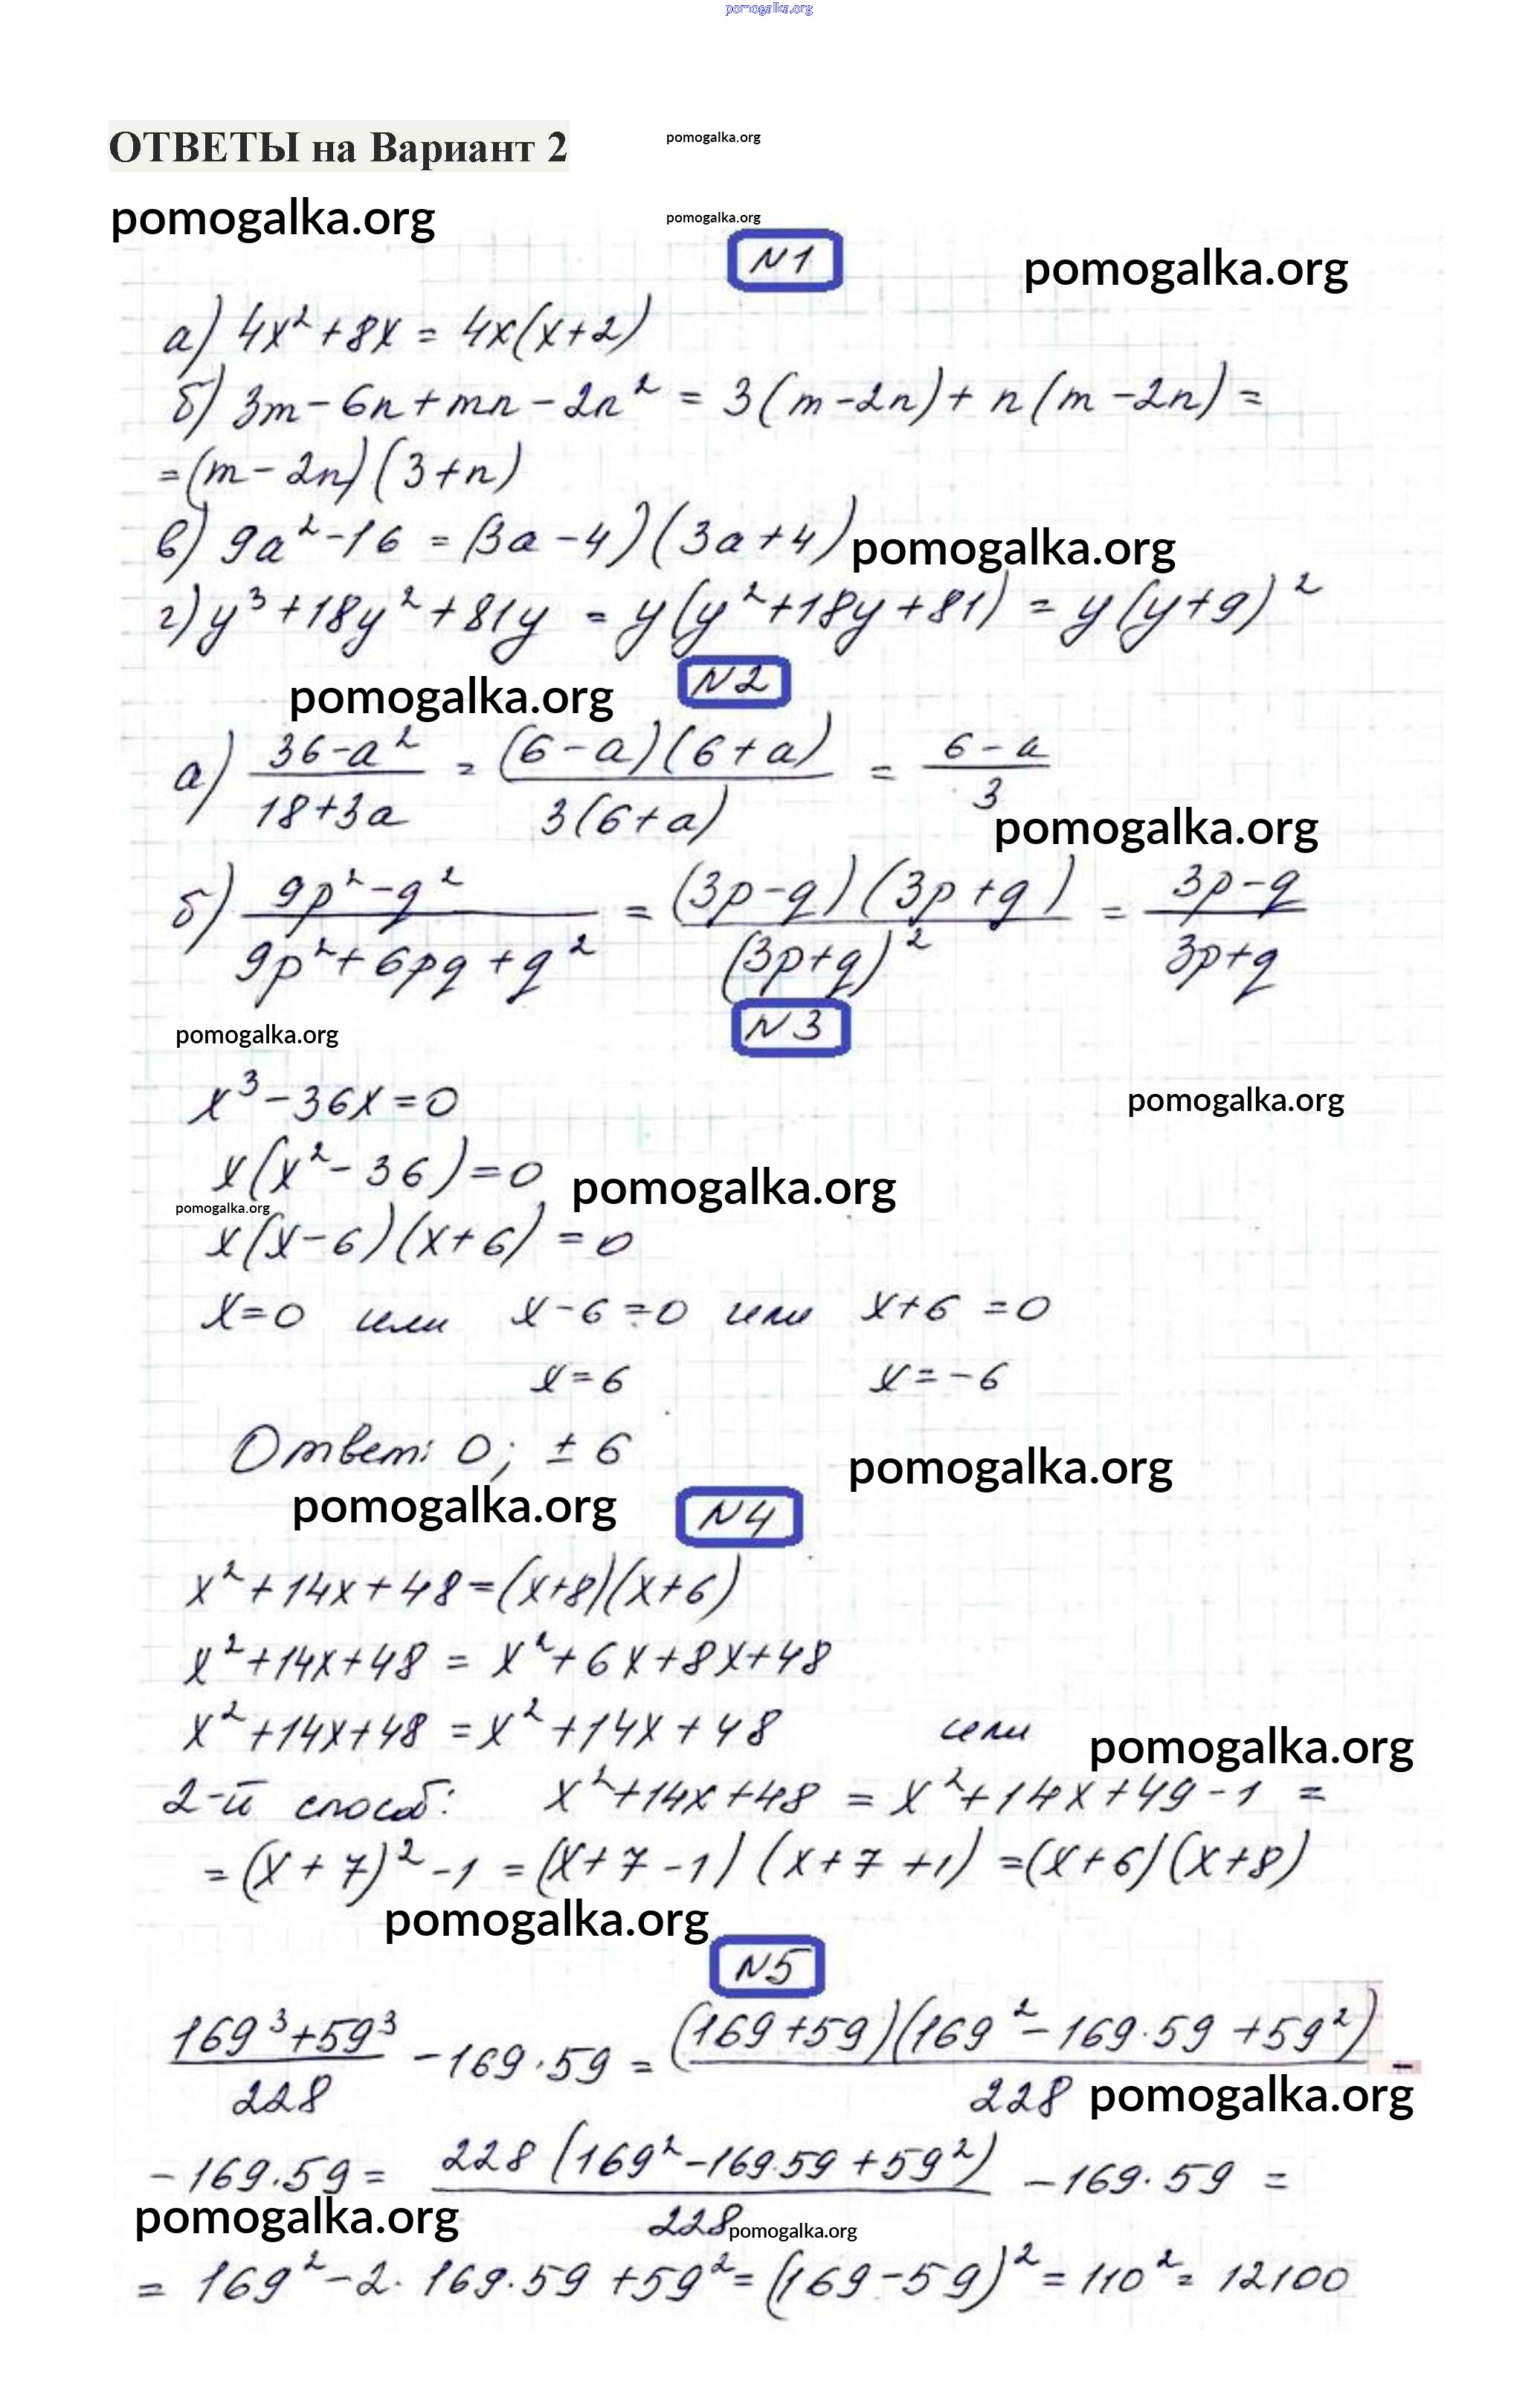 pomogalka.org
ОТВЕТЫ на Вариант 2
pomogalka.org
pomogalka.org
pomogalka.org
N1
pomogalka.org
а) 4x² + 8x = 4x(x+2)
б) 3m - 6n + mn - 2n² = 3(m-2n) + n(m-2n) =
= (m-2n)(3+n)
в) 9a² - 16 = (3a-4)(3a+4)
pomogalka.org
г) y³ + 18y² + 81y = y(y² + 18y + 81) = y(y+9)²
N2
pomogalka.org
а) (36-a²)/(18+3a) = ((6-a)(6+a))/(3(6+a)) = (6-a)/3
pomogalka.org
б) (9p²-q²)/(9p²+6pq+q²) = ((3p-q)(3p+q))/((3p+q)²) = (3p-q)/(3p+q)
N3
pomogalka.org
x³ - 36x = 0
pomogalka.org
x(x² - 36) = 0
pomogalka.org
pomogalka.org
x(x-6)(x+6) = 0
x=0 или x-6=0 или x+6=0
x=6 x=-6
Ответ: 0; ±6
pomogalka.org
pomogalka.org
N4
x² + 14x + 48 = (x+8)(x+6)
x² + 14x + 48 = x² + 6x + 8x + 48
x² + 14x + 48 = x² + 14x + 48 или
pomogalka.org
2-й способ: x² + 14x + 48 = x² + 14x + 49 - 1 =
= (x+7)² - 1 = (x+7-1)(x+7+1) = (x+6)(x+8)
pomogalka.org
N5
(169³+59³)/228 - 169·59 = ((169+59)(169²-169·59+59²))/228 -
pomogalka.org
- 169·59 = (228(169²-169·59+59²))/228 - 169·59 =
pomogalka.org
pomogalka.org
= 169² - 2·169·59 + 59² = (169-59)² = 110² = 12100